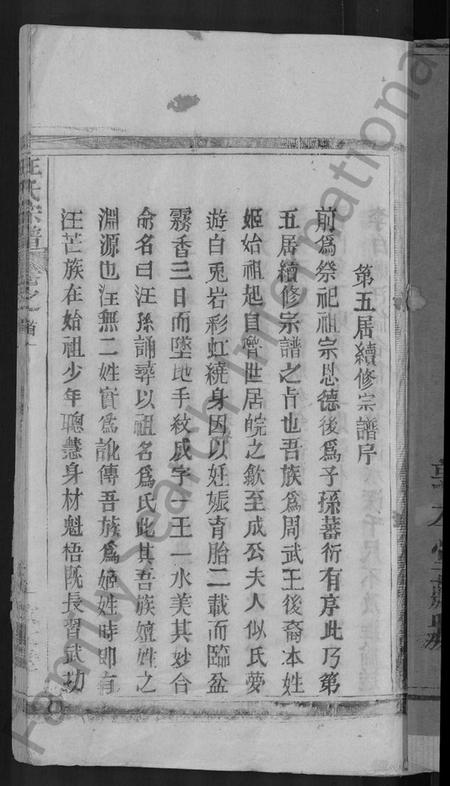 第五居續修宗譜序
前爲祭祀祖宗恩德後爲子孫蕃衍有序此乃第
五居續修宗譜之旨也吾族爲周武王後裔本姓
姬始祖起自魯世居皖之歙至成公夫人似氏夢
遊白兎岩彩虹繞身因以妊娠育胎二載而臨盆
霧香三日而墜地手紋成字一王一水美其妙合
命名曰汪孫誦尋以祖名爲氏此其吾族嬗姓之
淵源也汪無二姓實爲訛傳吾族爲姬姓時即有
汪芒族在始祖少年聰慧身材魁梧旣長習武功
汪氏宗譜 卷之首
FamilySearch International